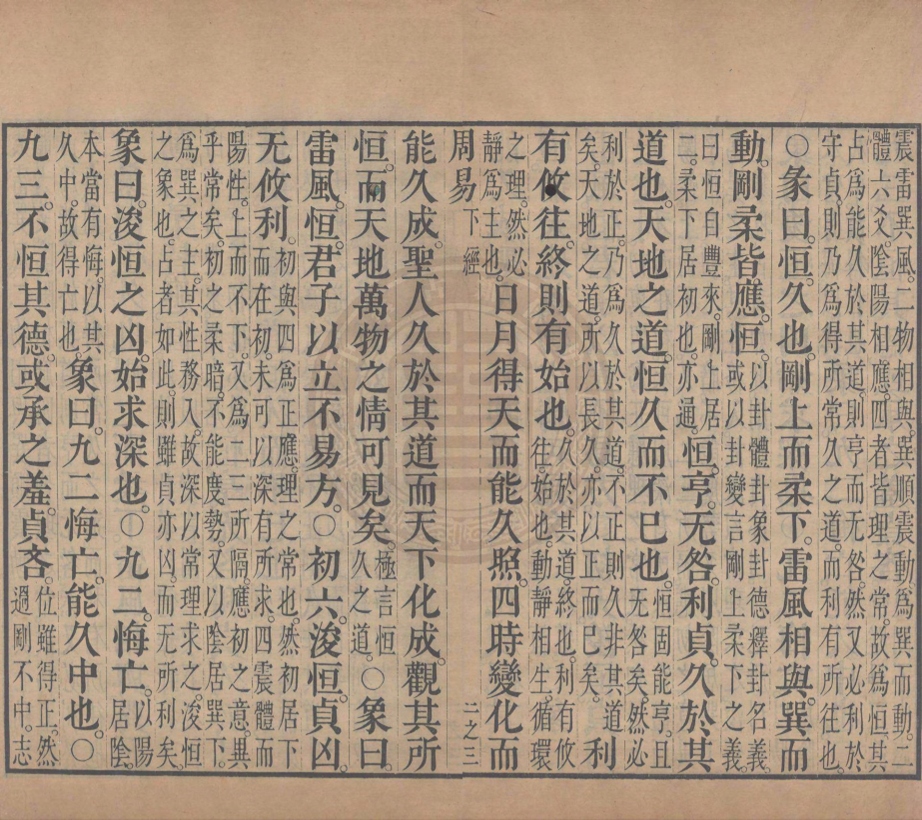 震雷巽風。二物相與。巽順震動。爲巽而動。二
體六爻。陰陽相應。四者皆理之常。故爲恒。其
占爲能久於其道。則亨而无咎。然又必利於
守貞。則乃爲得所常久之道。而利有所往也。
○彖曰。恒。久也。剛上而柔下。雷風相與。巽而
動。剛柔皆應。恒。以卦體卦象卦德釋卦名義。
或以卦變言剛上柔下之義。
曰恒自豐來。剛上居
二。柔下居初也。亦通。恒亨。无咎。利貞。久於其
道也。天地之道。恒久而不已也。恒固能亨。且
无咎矣。然必
利於正。乃爲久於其道。不正則久非其道
矣。天地之道。所以長久。亦以正而已矣。利
有攸往。終則有始也。久於其道。終也。利有攸
往。始也。動靜相生。循環
之理。然必
靜爲主也。日月得天而能久照。四時變化而
周易下經 二之三
能久成。聖人久於其道而天下化成。觀其所
恒。而天地萬物之情可見矣。極言恒
久之道。○象曰
雷風。恒。君子以立不易方。○初六。浚恒。貞凶
无攸利。初與四爲正應。理之常也。然初居下
而在初。未可以深有所求。四震體而
陽性。上而不下。又爲二三所隔。應初之意。異
乎常矣。初之柔暗。不能度勢。又以陰居巽下。
爲巽之主。其性務入。故深以常理求之。浚恒
之象也。占者如此。則雖貞亦凶。而无所利矣。
象曰。浚恒之凶。始求深也。○九二。悔亡。以陽
居陰。
本當有悔。以其
久中。故得亡也。象曰。九二悔亡。能久中也。○
九三。不恒其德。或承之羞。貞吝。位雖得正。然
過剛不中。志